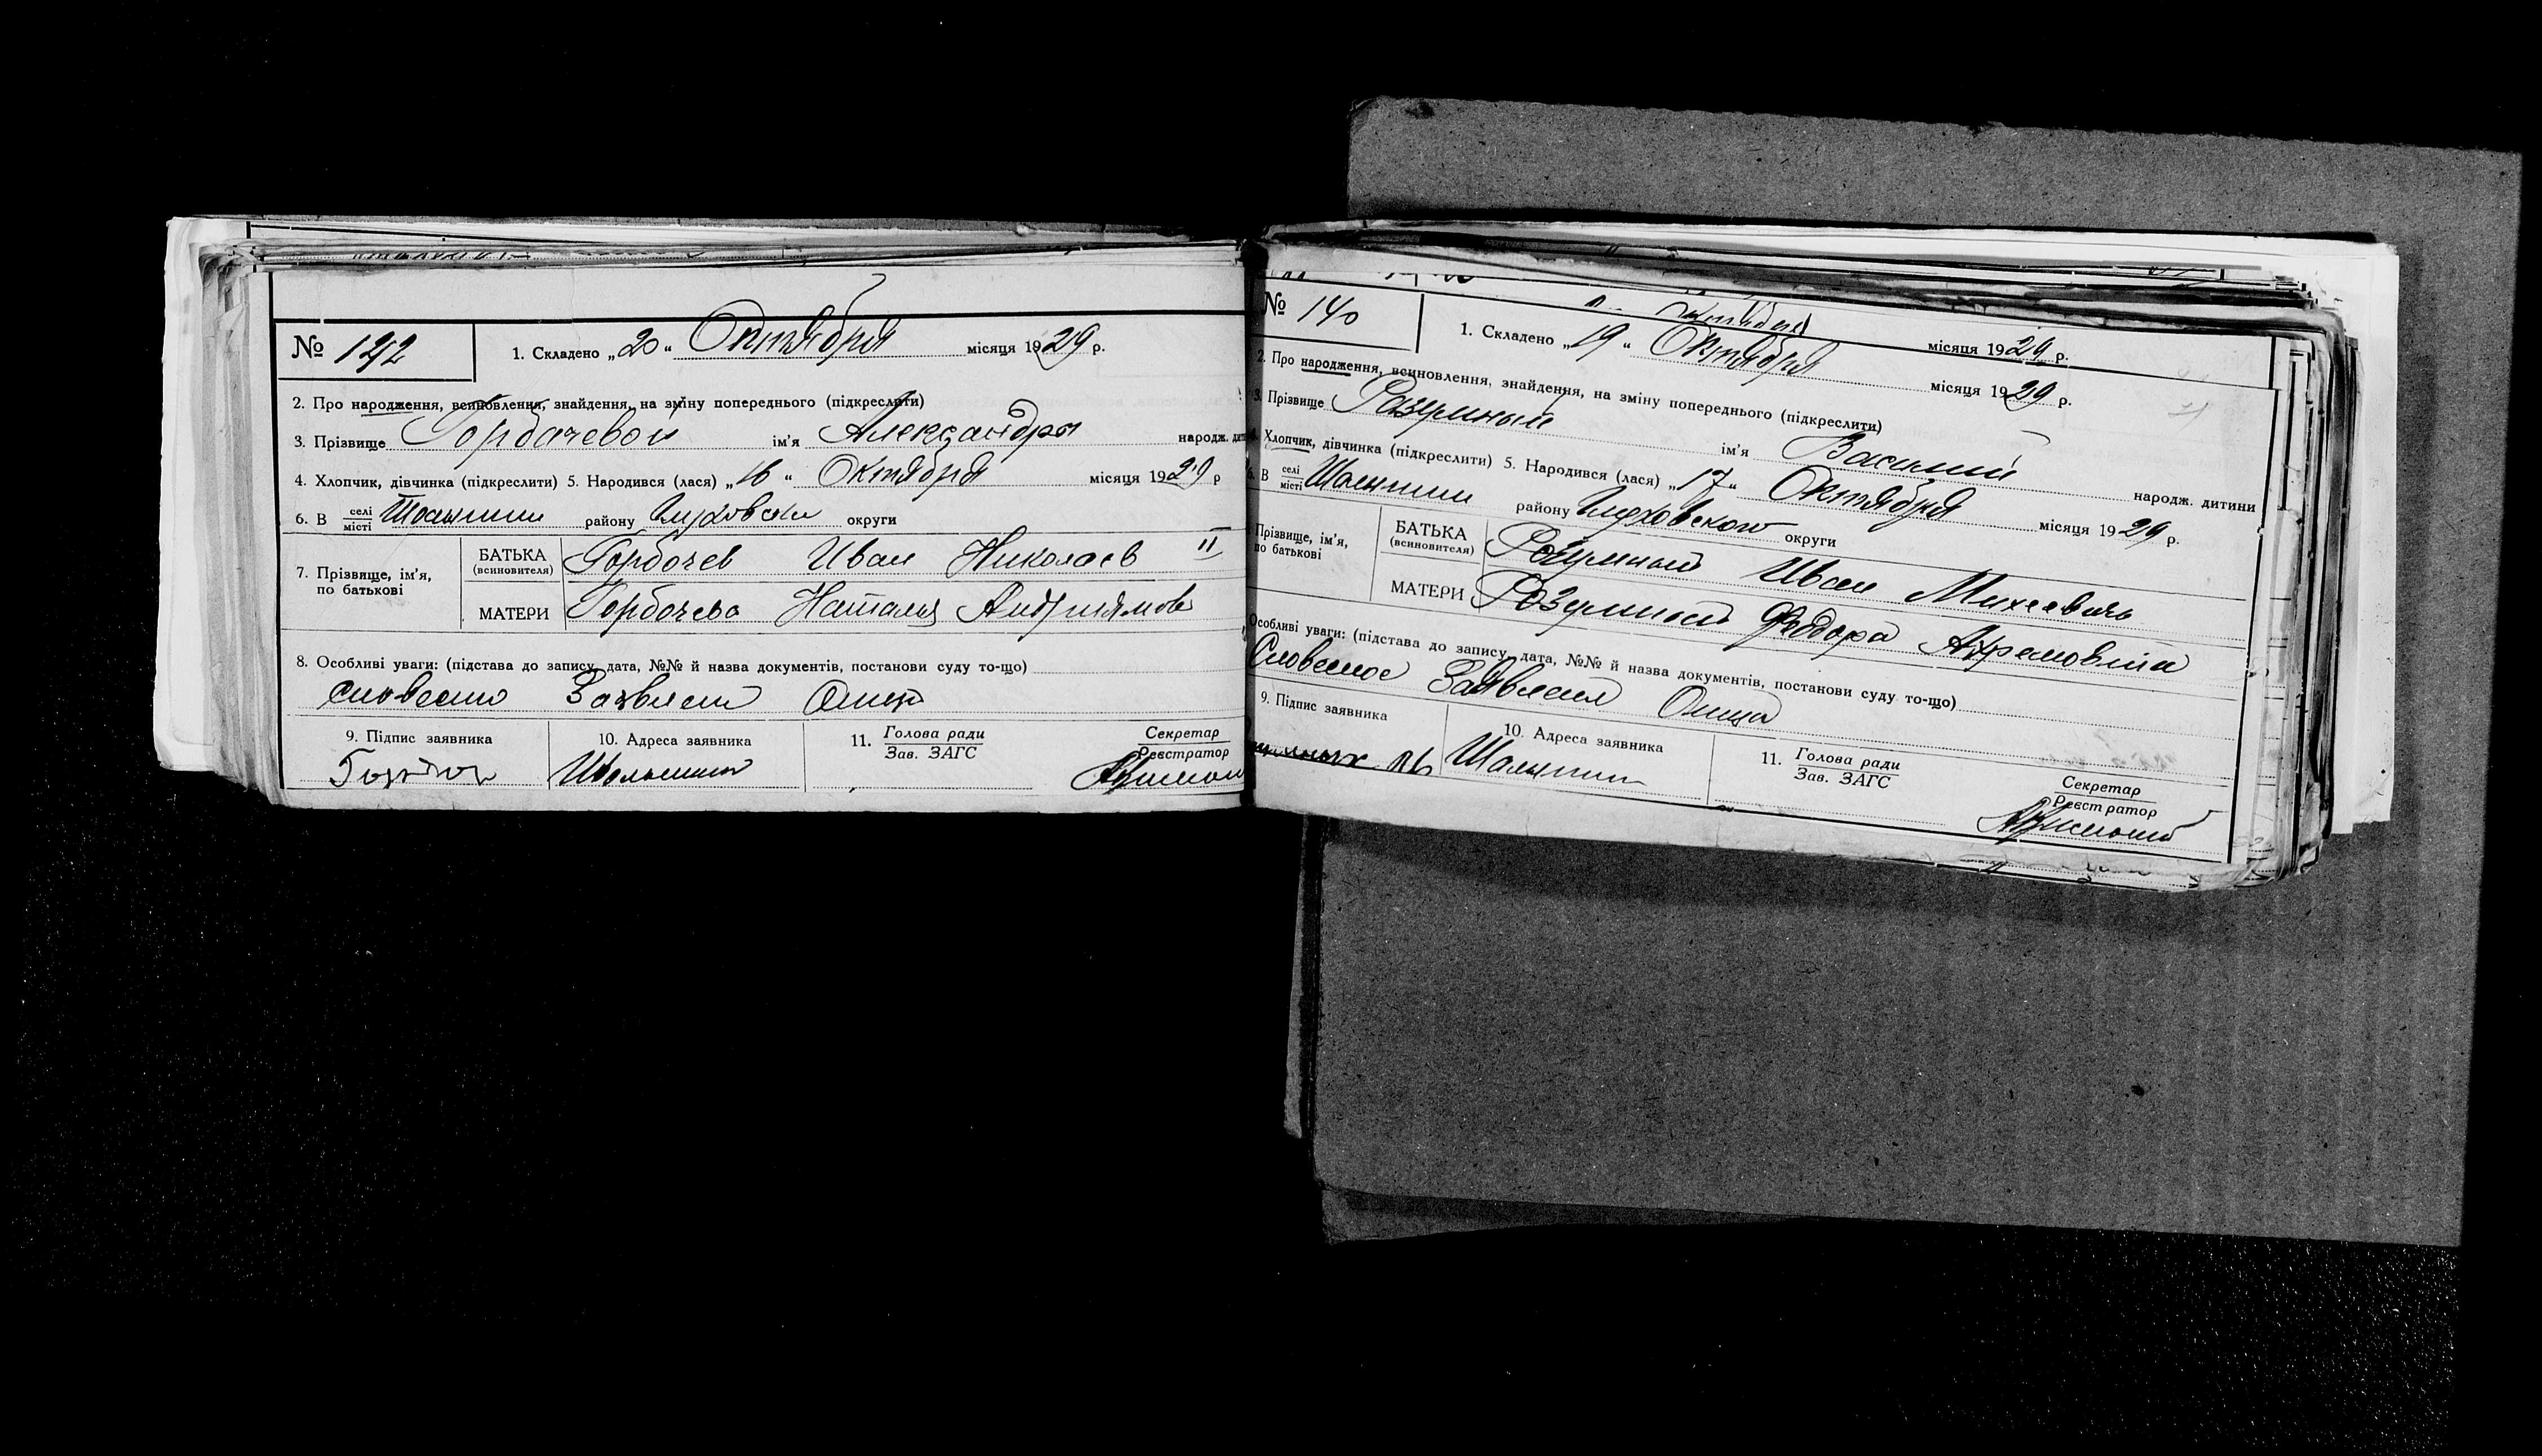 № 122 1. Складено „20“ Октября місяця 1929 р.
2. Про народження, всиновлення, знайдення, на зміну попереднього (підкреслити)
3. Прізвище Горбачевой ім'я Александры народж. дит
4. Хлопчик, дівчинка (підкреслити) 5. Народився (лася) „16“ Октября місяця 1929 р
6. В селі місті Шалыгини району округи
7. Прізвище, ім'я, по батькові
БАТЬКА (всиновителя) Горбачев Иван Николаев II
МАТЕРИ Горбачева Наталия
8. Особливі уваги: (підстава до запису, дата, №№ й назва документів, постанови суду то-що)
словесно Заявлен Отца
9. Підпис заявника 10. Адреса заявника 11. Голова ради Зав. ЗАГС Секретар Реєстратор
Шалыгини
№ 140 1. Складено „19“ Октября місяця 1929 р.
місяця 1929 р.
2. Про народження, всиновлення, знайдення, на зміну попереднього (підкреслити)
3. Прізвище Разумный ім'я Василий народж. дитини
4. Хлопчик, дівчинка (підкреслити) 5. Народився (лася) „17“ Октября місяця 1929 р.
6. В селі місті Шалыгини району Глуховского округи
Прізвище, ім'я, по батькові
БАТЬКА (всиновителя) Разумный Иван Михеевичь
МАТЕРИ Разумная Феодора
Особливі уваги: (підстава до запису, дата, №№ й назва документів, постанови суду то-що)
Словесное Заявления Отца
9. Підпис заявника 10. Адреса заявника 11. Голова ради Зав. ЗАГС Секретар Реєстратор
Шалыгини